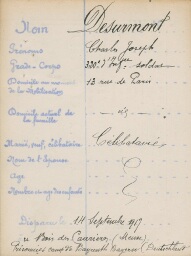 Nom Desurmont
Prénoms Charles Joseph
Grade - Corps 338e d'Infie soldat
Domicile au moment de la mobilisation 13 rue de Paris
Domicile actuel de la famille
Marié, veuf, célibataire Célibataire
Nom de l'épouse
Age
Nombre et âge des enfants
Disparu le 14 Septembre 1917
au Bois des Caurières (Meuse)
Prisonnier camp de Bayreuth Bayern (Deutschland